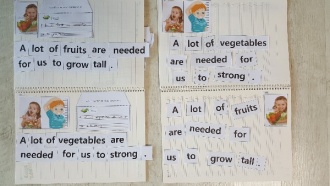 A lot of fruits are needed
for us to grow tall .
A lot of vegetables
are needed for
us to strong .
A lot of vegetables are
needed for us to strong .
A lot of fruits
are needed for
us to grow tall .